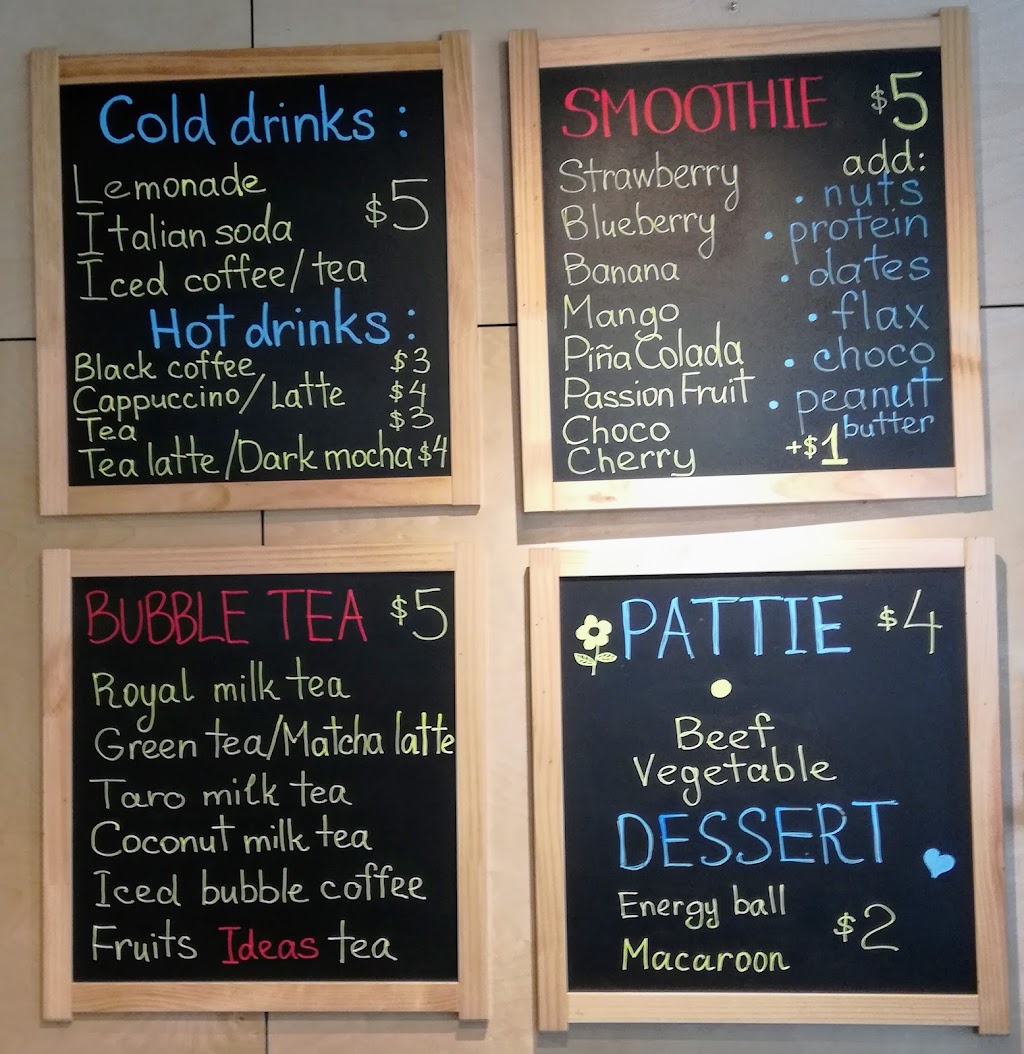 Cold drinks :
Lemonade
Italian soda $5
Iced coffee/tea
Hot drinks :
Black coffee $3
Cappuccino/Latte $4
Tea $3
Tea latte/Dark mocha $4
SMOOTHIE $5
Strawberry
Blueberry
Banana
Mango
Piña Colada
Passion Fruit
Choco
Cherry
add:
• nuts
• protein
• dates
• flax
• choco
• peanut
butter
+$1
BUBBLE TEA $5
Royal milk tea
Green tea/Matcha latte
Taro milk tea
Coconut milk tea
Iced bubble coffee
Fruits Ideas tea
PATTIE $4
Beef
Vegetable
DESSERT
Energy ball
Macaroon
$2